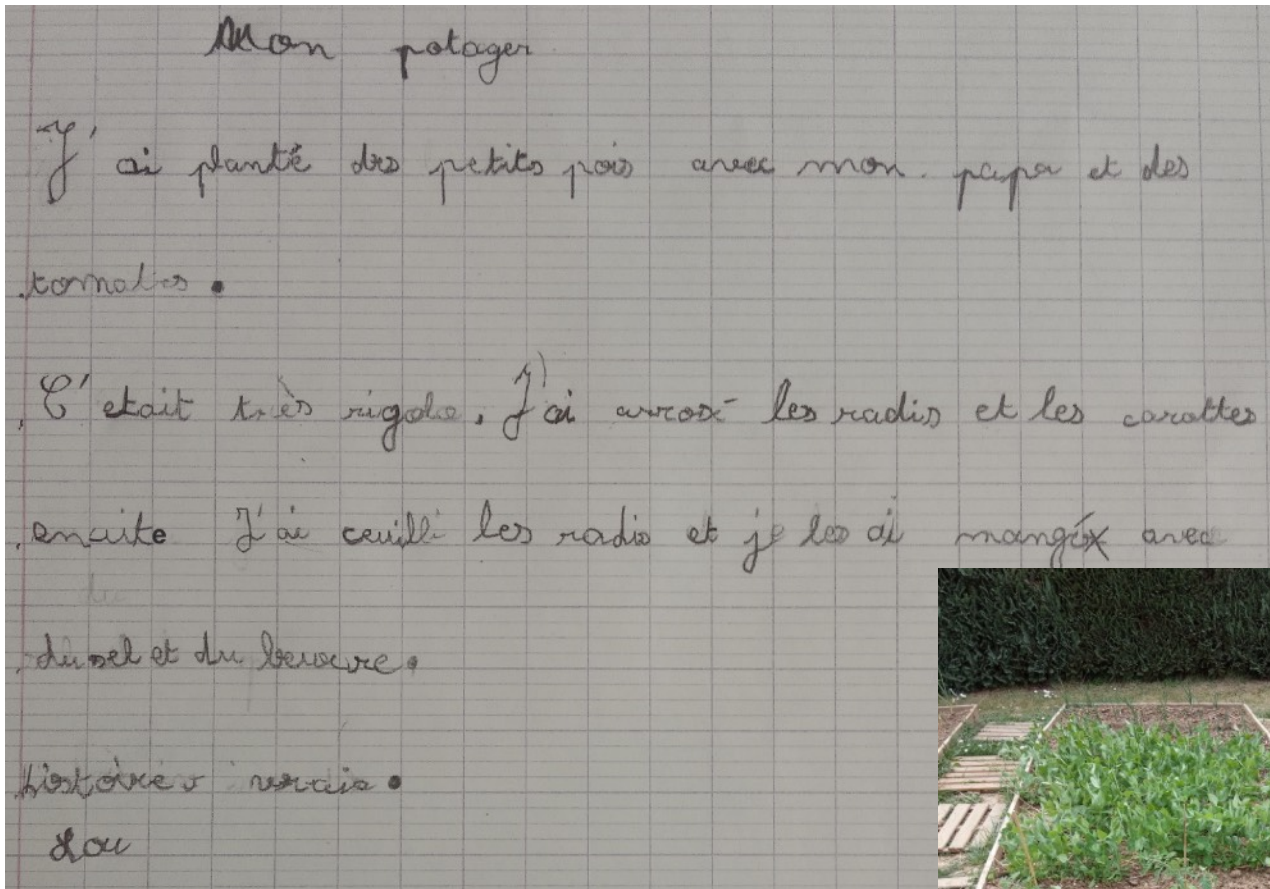 Mon potager
J'ai planté des petits pois avec mon papa et des
tomates.
C'etait très rigolo. J'ai arrosé les radis et les carottes
ensuite J'ai ceuilli les radis et je les ai mangé avec
du sel et du beurre.
histoire vraie.
Lou